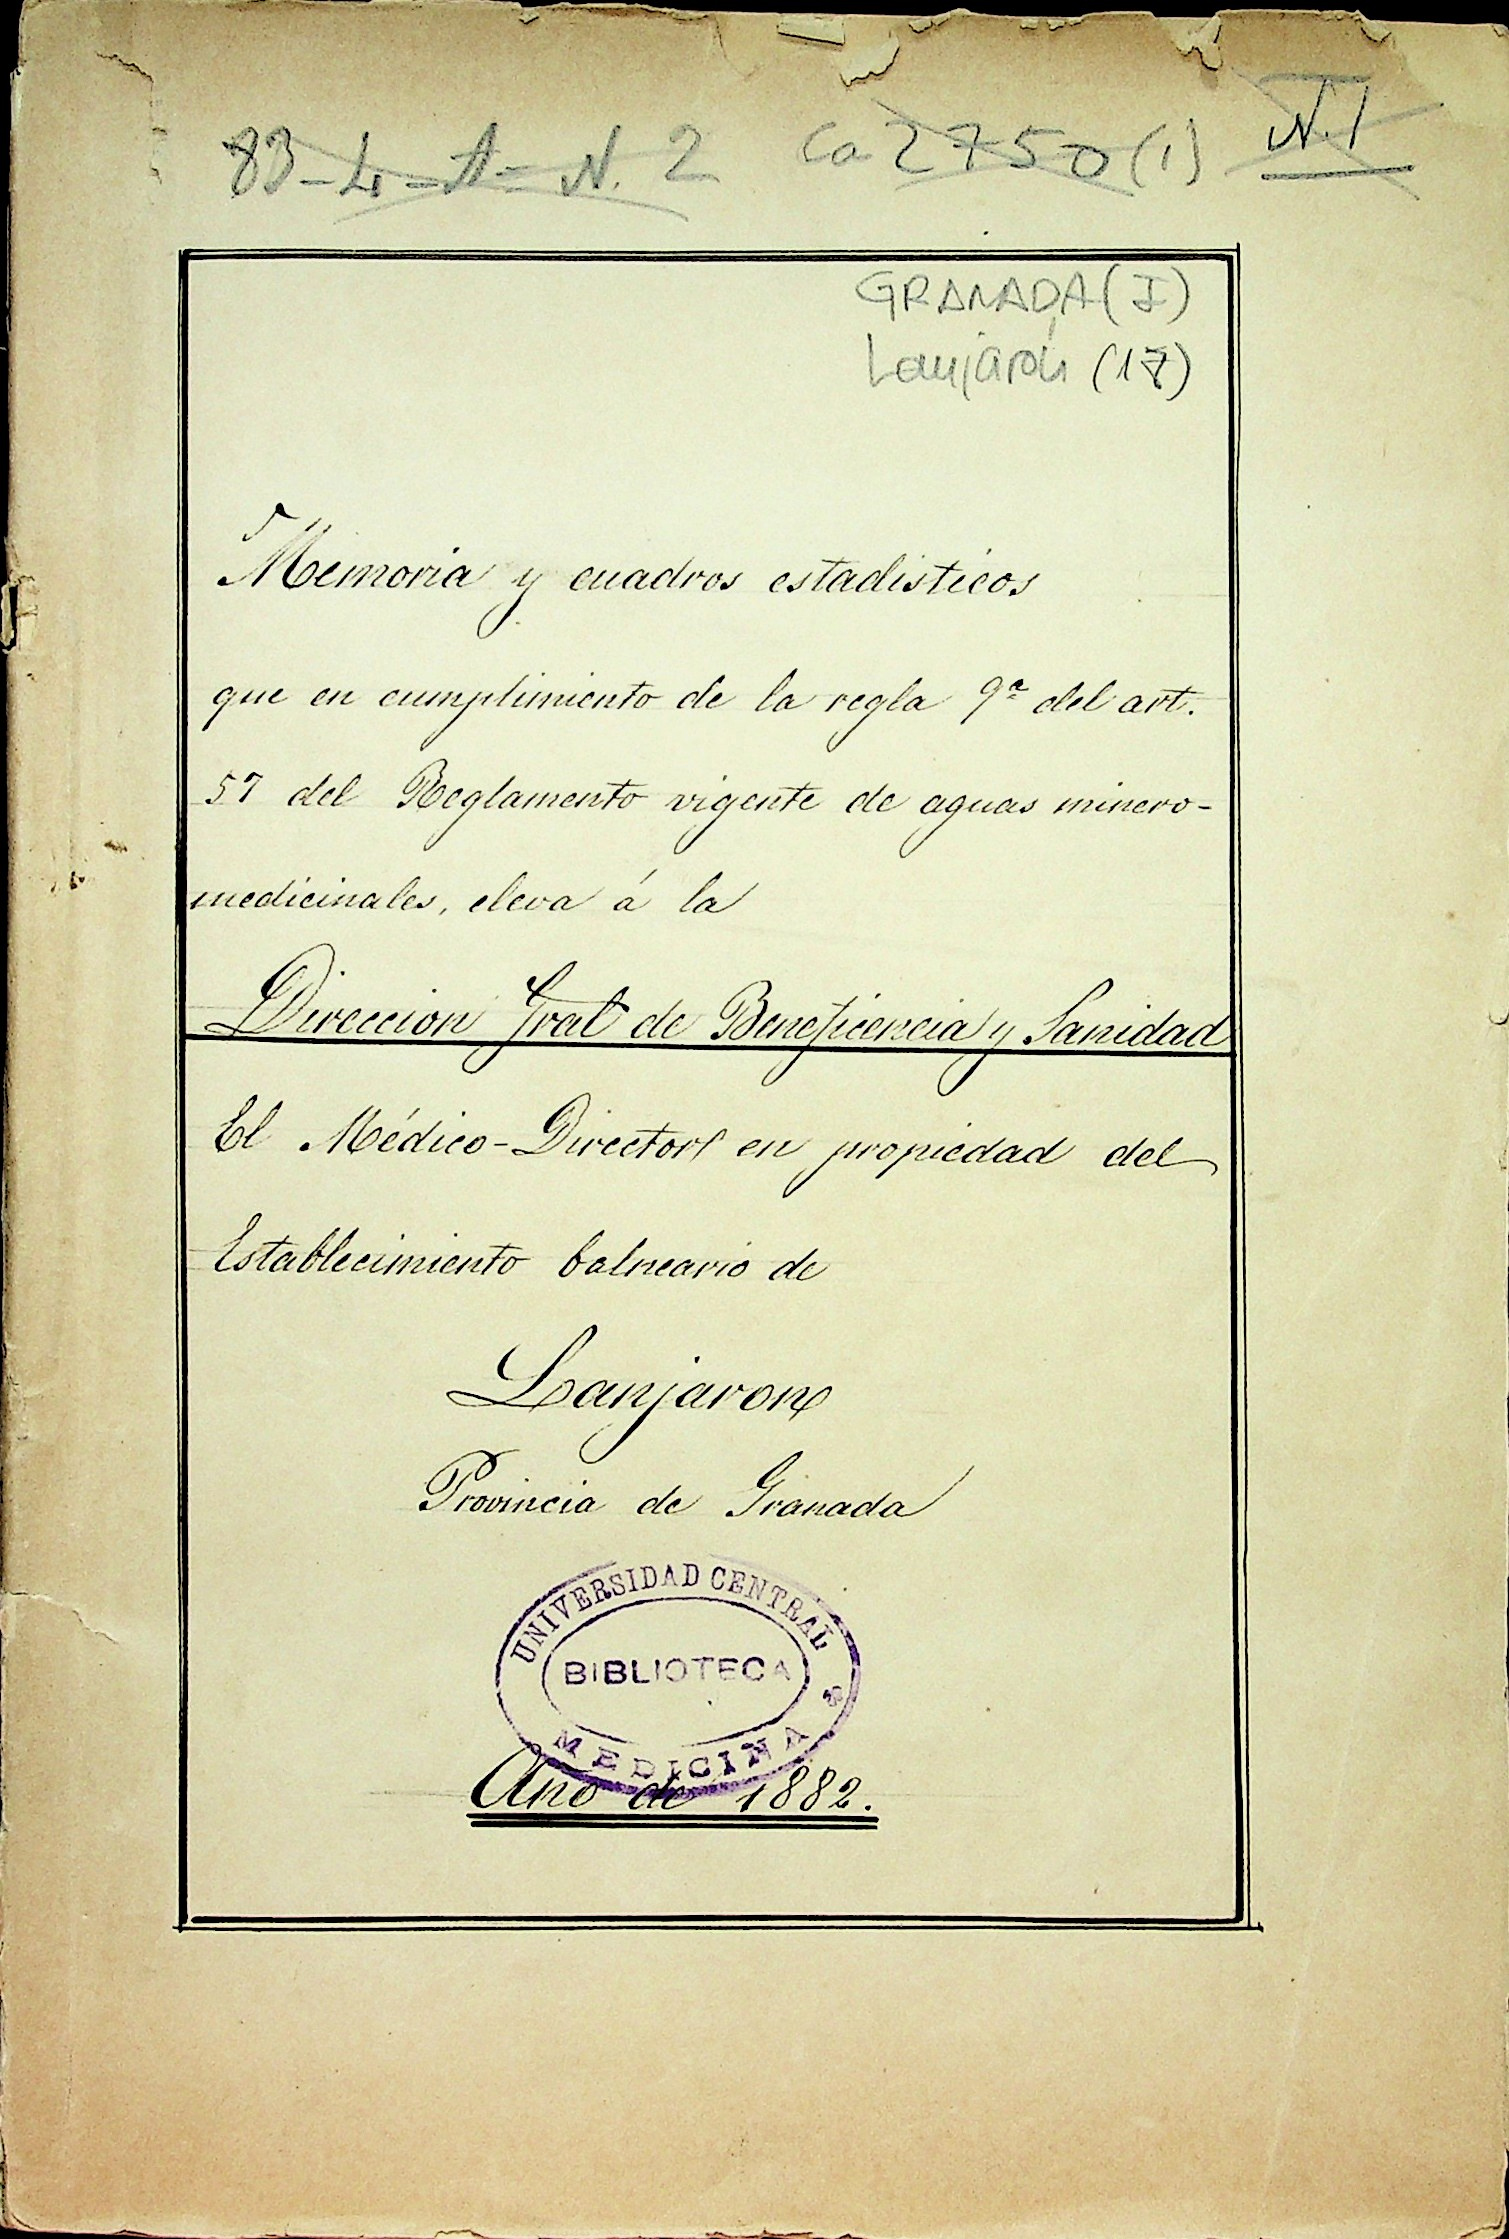 83-4-A-N. 2 Ca 2750 (1) N. 1
GRANADA (I)
Lanjarón (17)
Memoria y cuadros estadisticos
que en cumplimiento de la regla 9ª del art.
57 del Reglamento vigente de aguas minero-
medicinales, eleva á la
Direccion Gral de Beneficencia y Sanidad
El Médico-Director en propiedad del
Establecimiento balneario de
Lanjaron
Provincia de Granada
UNIVERSIDAD CENTRAL
BIBLIOTECA
MEDICINA
Año de 1882.